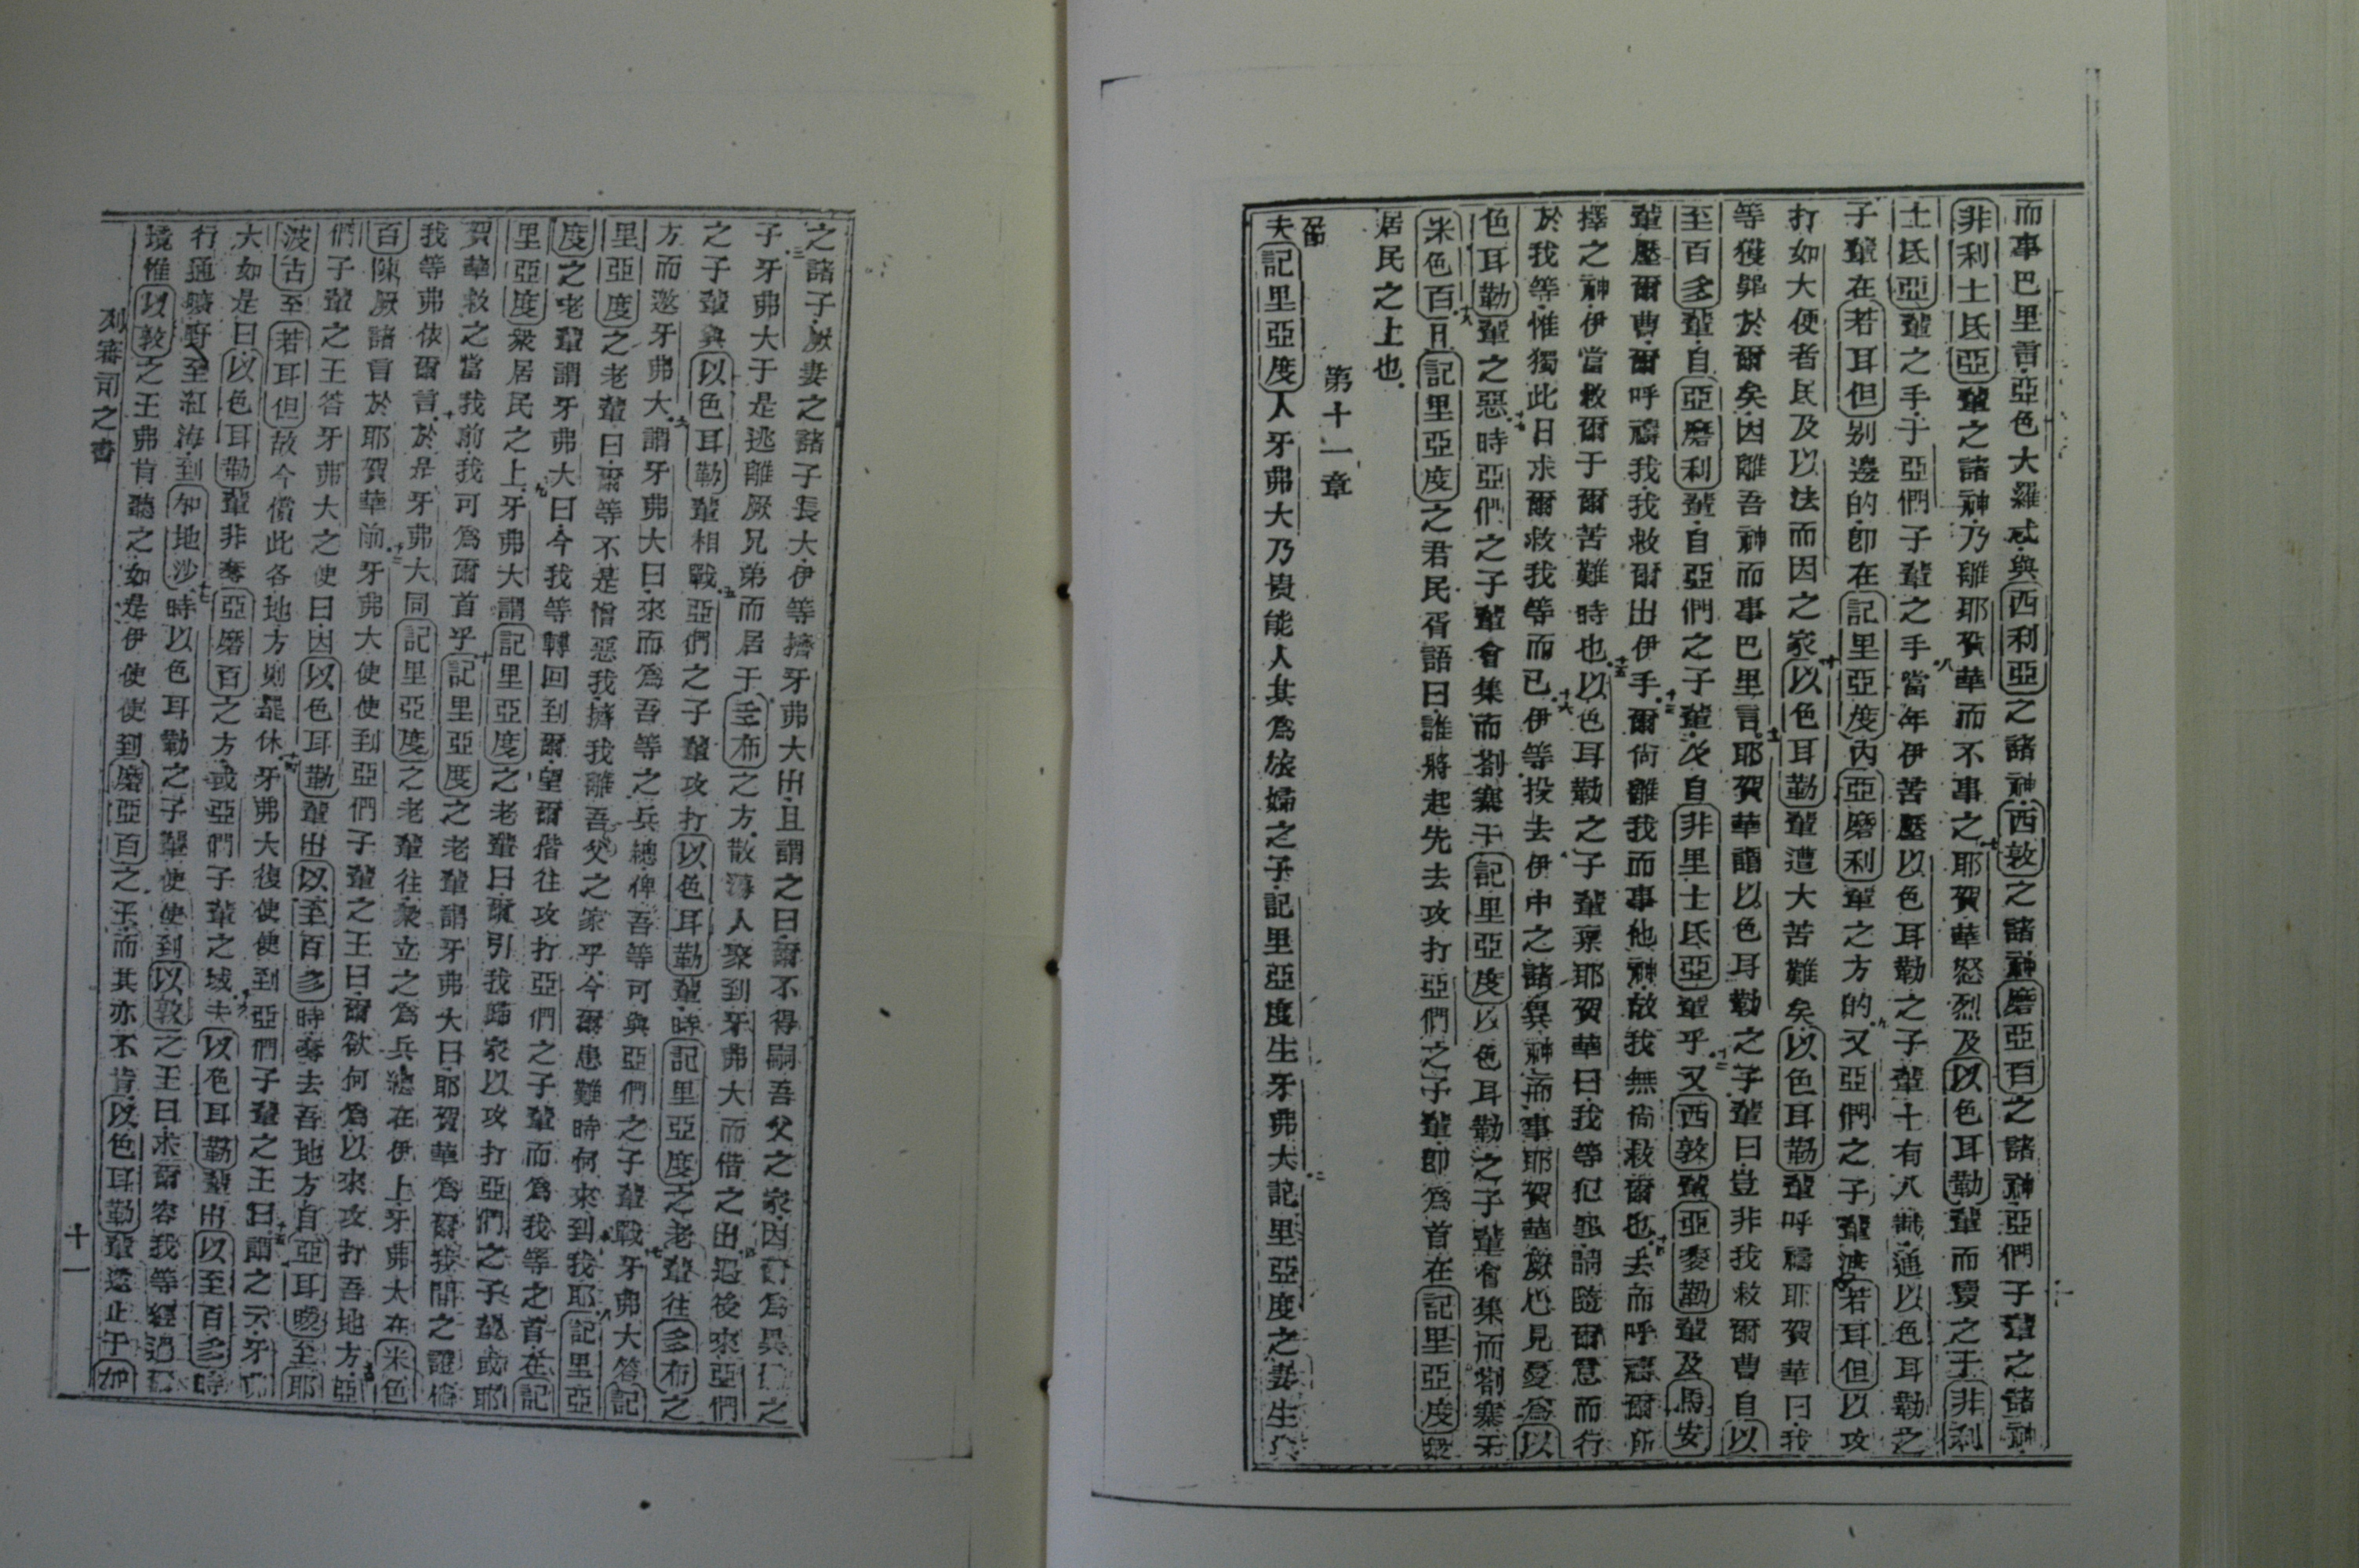 而事巴里書亞色大羅忒與西利亞之諸神西敦之諸神磨亞百之諸神亞們子輩之諸神
非利士氏亞輩之諸神乃離耶賀華而不事之七耶賀華怒烈及以色耳勒輩而賣之于非利
士氏亞輩之手于亞們子輩之手八當年伊苦壓以色耳勒之子輩十有八載通以色耳勒之
子輩在若耳但別邊的即在記里亞度內亞磨利輩之方的九又亞們之子輩渡若耳但以攻
打如大便者民及以法而因之家以色耳勒輩遭大苦難矣十以色耳勒輩呼禱耶賀華曰我
等獲罪於爾矣因離吾神而事巴里言十一耶賀華謂以色耳勒之子輩曰豈非我救爾曹自以
至百多輩自亞磨利輩自亞們之子輩及自非里士氏亞輩乎十二又西敦輩亞麥勒輩及馬安
輩壓爾曹爾呼禱我我救爾出伊手十三爾尚離我而事他神故我無尚救爾也十四去而呼禱爾所
擇之神伊當救爾于爾苦難時也十五以色耳勒之子輩稟耶賀華曰我等犯罪請隨爾意而行
於我等惟獨此日求爾救我等而已十六伊等投去伊中之諸異神而事耶賀華厥心見憂為以
色耳勒輩之惡十七時亞們之子輩會集而劄寨于記里亞度以色耳勒之子輩會集而劄寨于
米色百十八記里亞度之君民胥語曰誰將起先去攻打亞們之子輩即為首在記里亞度衆
居民之上也
第十一章
一節
夫記里亞度人牙弗大乃貴能人其為旅婦之子記里亞度生牙弗大二記里亞度之妻生
之諸子厥妻之諸子長大伊等擠牙弗大出且謂之曰爾不得嗣吾父之家因爾為異之
子三牙弗大于是逃離厥兄弟而居于多布之方散薄人聚到牙弗大而偕之出四過後來亞們
之子輩與以色耳勒輩相戰五亞們之子輩攻打以色耳勒輩時記里亞度之老輩往多布之
方而邀牙弗大六謂牙弗大曰來而為吾等之兵總俾吾等可與亞們之子輩戰七牙弗大答記
里亞度之老輩曰爾等不是憎惡我擠我離吾父之家乎今爾患難時何來到我耶八記里亞
度之老輩謂牙弗大曰今我等轉回到爾望爾偕往攻打亞們之子輩而為我等之首在記
里亞度衆居民之上九牙弗大謂記里亞度之老輩曰爾引我歸家以攻打亞們之子輩或耶
賀華救之當我前我可為爾首乎十記里亞度之老輩謂牙弗大曰耶賀華為爾我間之證倘
我等弗依爾言十一於是牙弗大同記里亞度之老輩往衆立之為兵總在伊上牙弗大在米色
百陳厥諸言於耶賀華前十二牙弗大使使到亞們子輩之王曰爾欲何為以來攻打吾地方十三亞
們子輩之王答牙弗大之使曰因以色耳勒輩出以至百多時奪去吾地方自亞耳嫩至耶
波古至若耳但故今償此各地方則罷休十四牙弗大復使使到亞們子輩之王曰十五謂之云牙弗
大如是曰以色耳勒輩非奪亞磨百之方或亞們子輩之域十六夫以色耳勒輩出以至百多時
行通曠野至紅海到加地沙十七時以色耳勒之子輩使使到以敦之王曰求爾容我等經過
境惟以敦之王弗肯聽之如是伊使使到磨亞百之王而其亦不肯以色耳勒輩遂止于加
列審司之書
十一